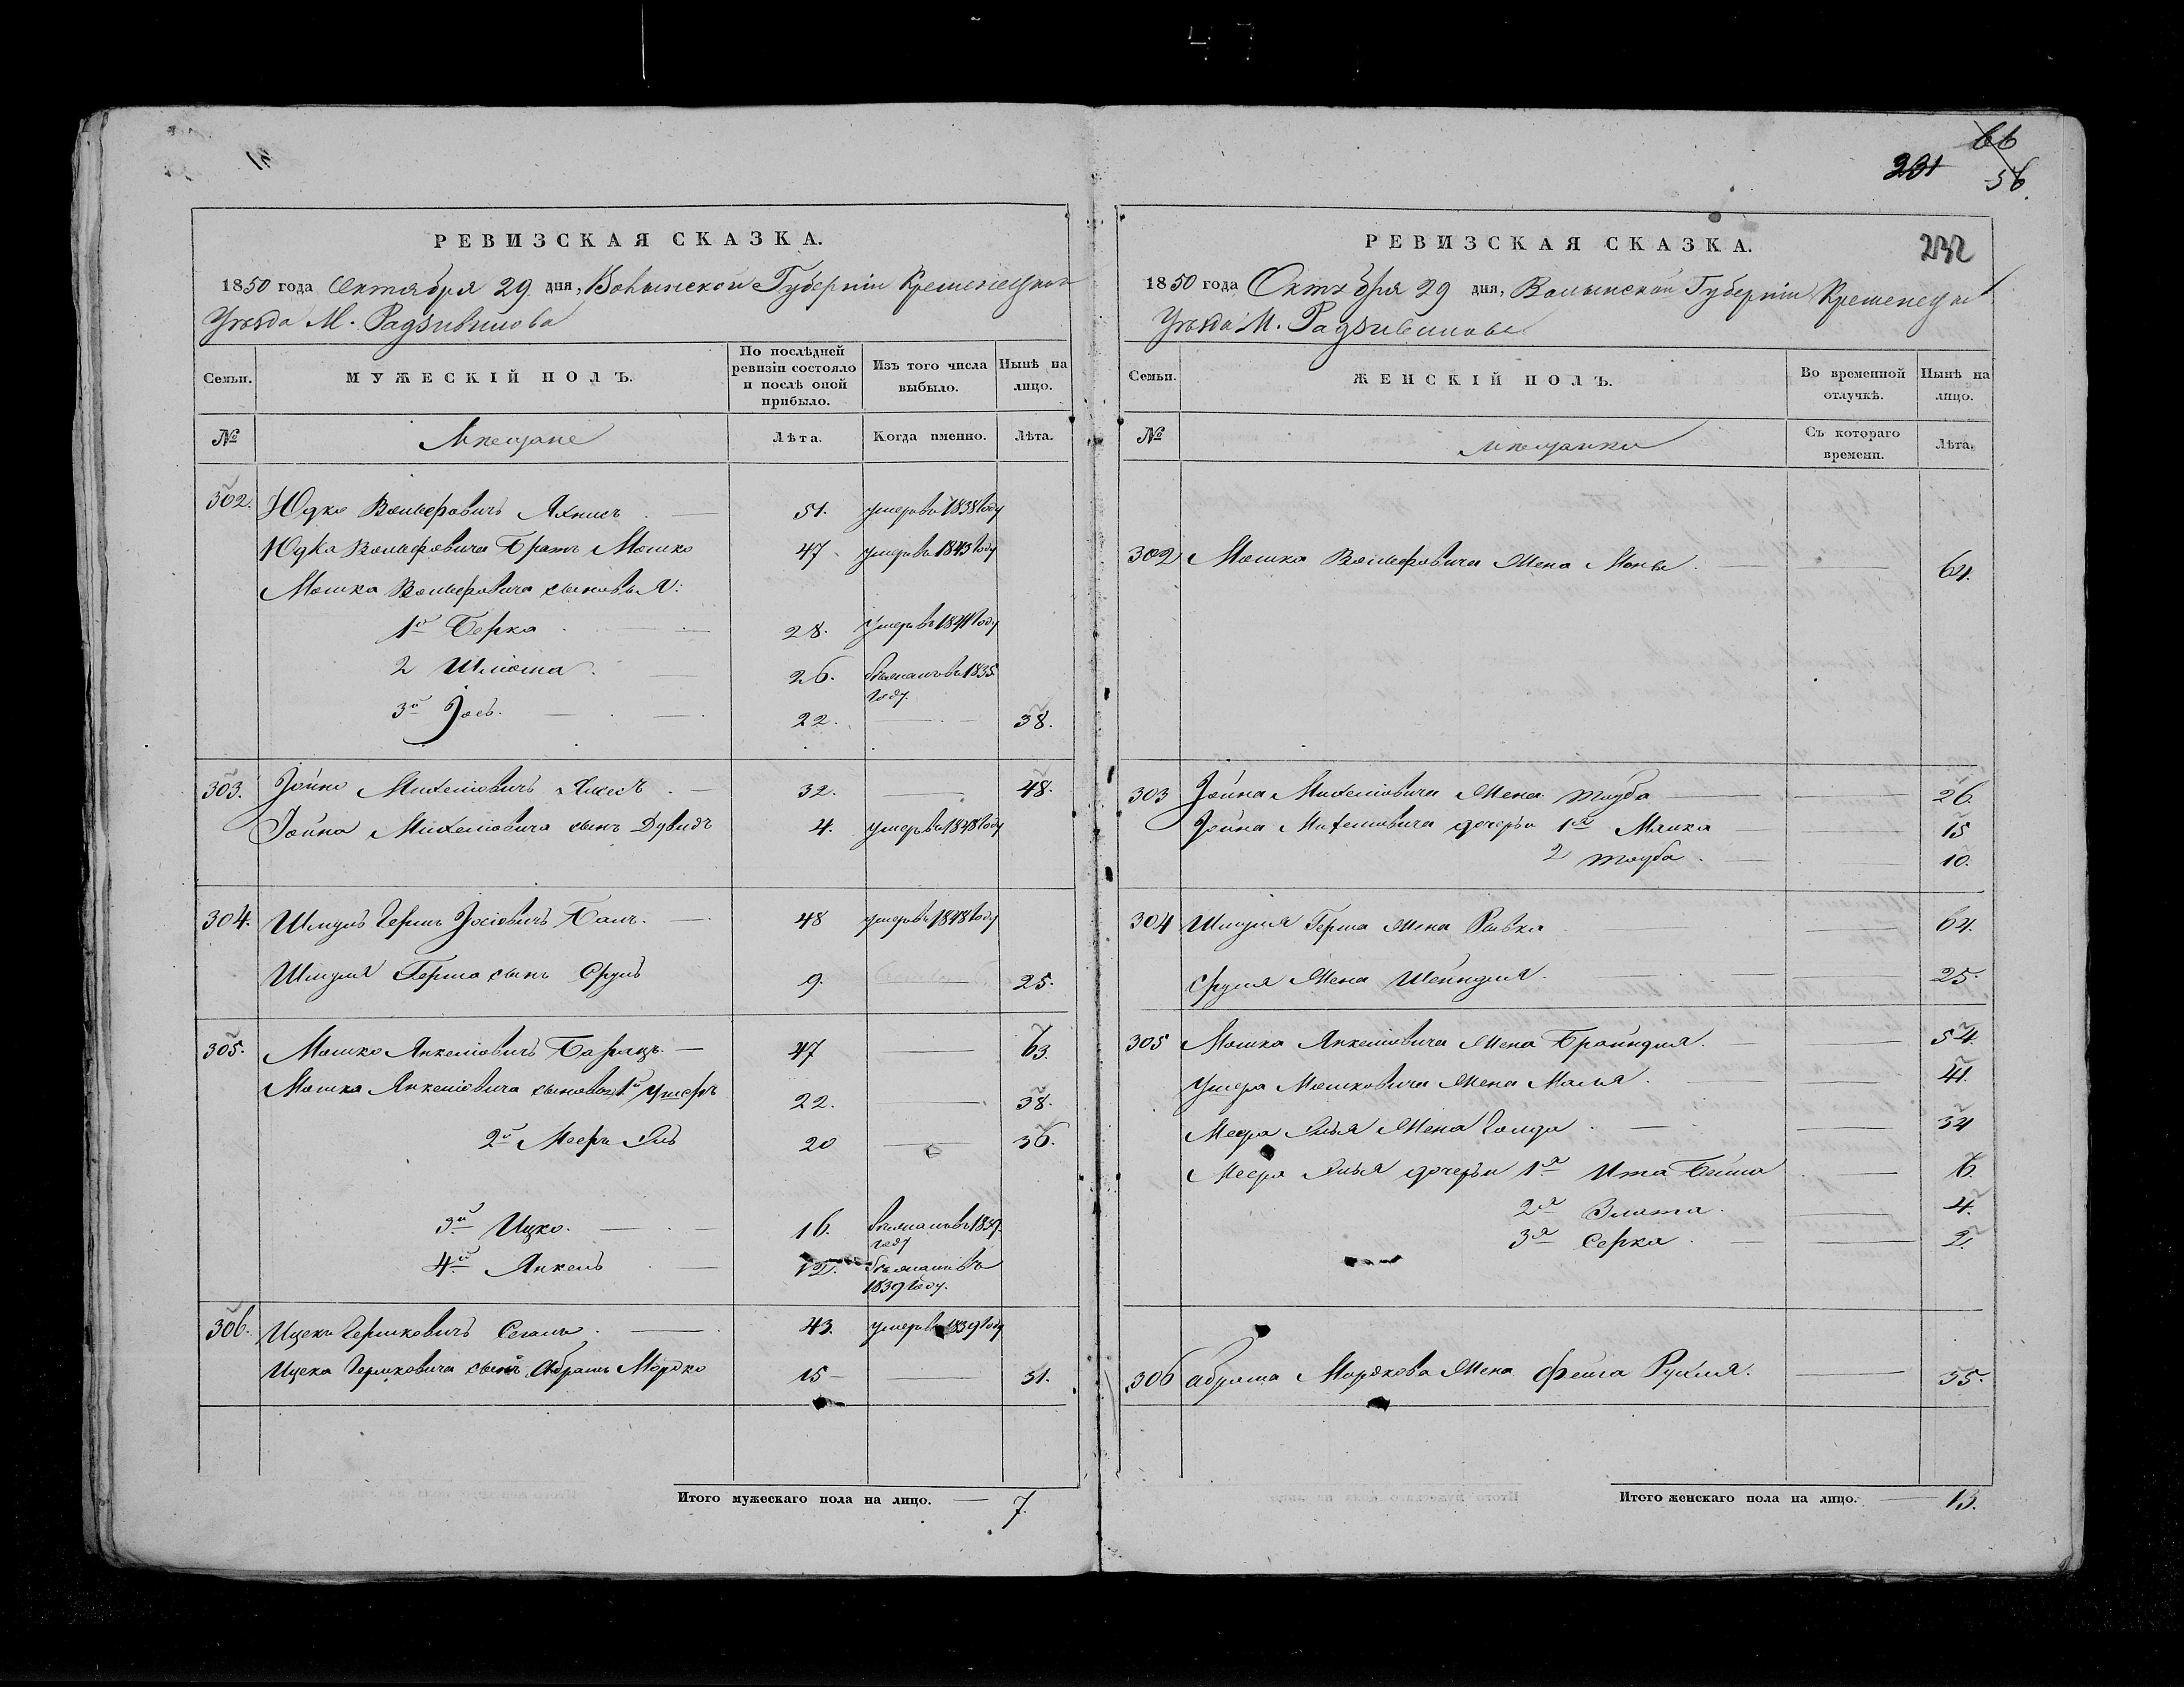 66
231
56.
РЕВИЗСКАЯ СКАЗКА.
1850 года Октября 29 дня, Волынской Губерніи Кременецкаго
Уѣзда М. Радзивилова
Семьи.
МУЖЕСКІЙ ПОЛЪ.
По послѣдней ревизіи состояло и послѣ оной прибыло.
Изъ того числа выбыло.
Нынѣ на лицо.
№
Мѣщане
Лѣта.
Когда именно.
Лѣта.
302. Юдко Вольфовичъ 51. умеръ въ 1838 году
Юдка Вольфовича братъ Мошко 47. умеръ въ 1843 году
Мошка Вольфовича сыновья:
1й Берко 28. умеръ въ 1841 году
2 Шліома 26. бѣжалъ въ 1835 году.
3й Іось. 22. 38.
303. Іойно Михелiовичъ 32. 48.
Іойна Михелiовича сынъ Дувидъ 4. умеръ въ 1848 году
304. Шмуль Гершъ Іосiовичъ 48 умеръ въ 1848 году
Шмуля Герша сынъ Сруль 9. 25.
305. Мошко Янкелiовичъ 47 63.
Мошка Янкелiовича сыновья 1й Ушеръ 22. 38.
2й Мееръ Эль 20 36.
3й Ицко. 16. бѣжалъ въ 1839 году
4й Янкель 12. бѣжалъ въ 1839 году.
306. Ицекъ Гершковичъ Сегалъ 43. умеръ въ 1839 году
Ицека Гершковича сынъ Абрамъ Мордко 15 31.
Итого мужескаго пола на лицо. 7.
РЕВИЗСКАЯ СКАЗКА.
232
1850 года Октября 29 дня, Волынской Губерніи Кременецкаго
Уѣзда М. Радзивилова
Семьи.
ЖЕНСКІЙ ПОЛЪ.
Во временной отлучкѣ.
Нынѣ на лицо.
№
Мѣщанки
Съ котораго времени.
Лѣта.
302 Мошка Вольфовича Жена 64.
303 Іойна Михелiовича Жена Тауба 26.
Іойна Михелiовича дочери 1я Малка 15
2 Тауба 10.
304 Шмуля Герша Жена Рывка 64.
Сруля Жена Шейндля 25.
305 Мошка Янкелiовича Жена Брайндля. 54.
Ушера Мошковича Жена Малья 41.
Меера Элья Жена Голда 34
Меера Элья дочери 1я Ита Бейла 6.
2я Злата. 4.
3я Серка 2.
306 Абрама Мордкова Жена Фейга Рухля. 35.
Итого женскаго пола на лицо. 13.